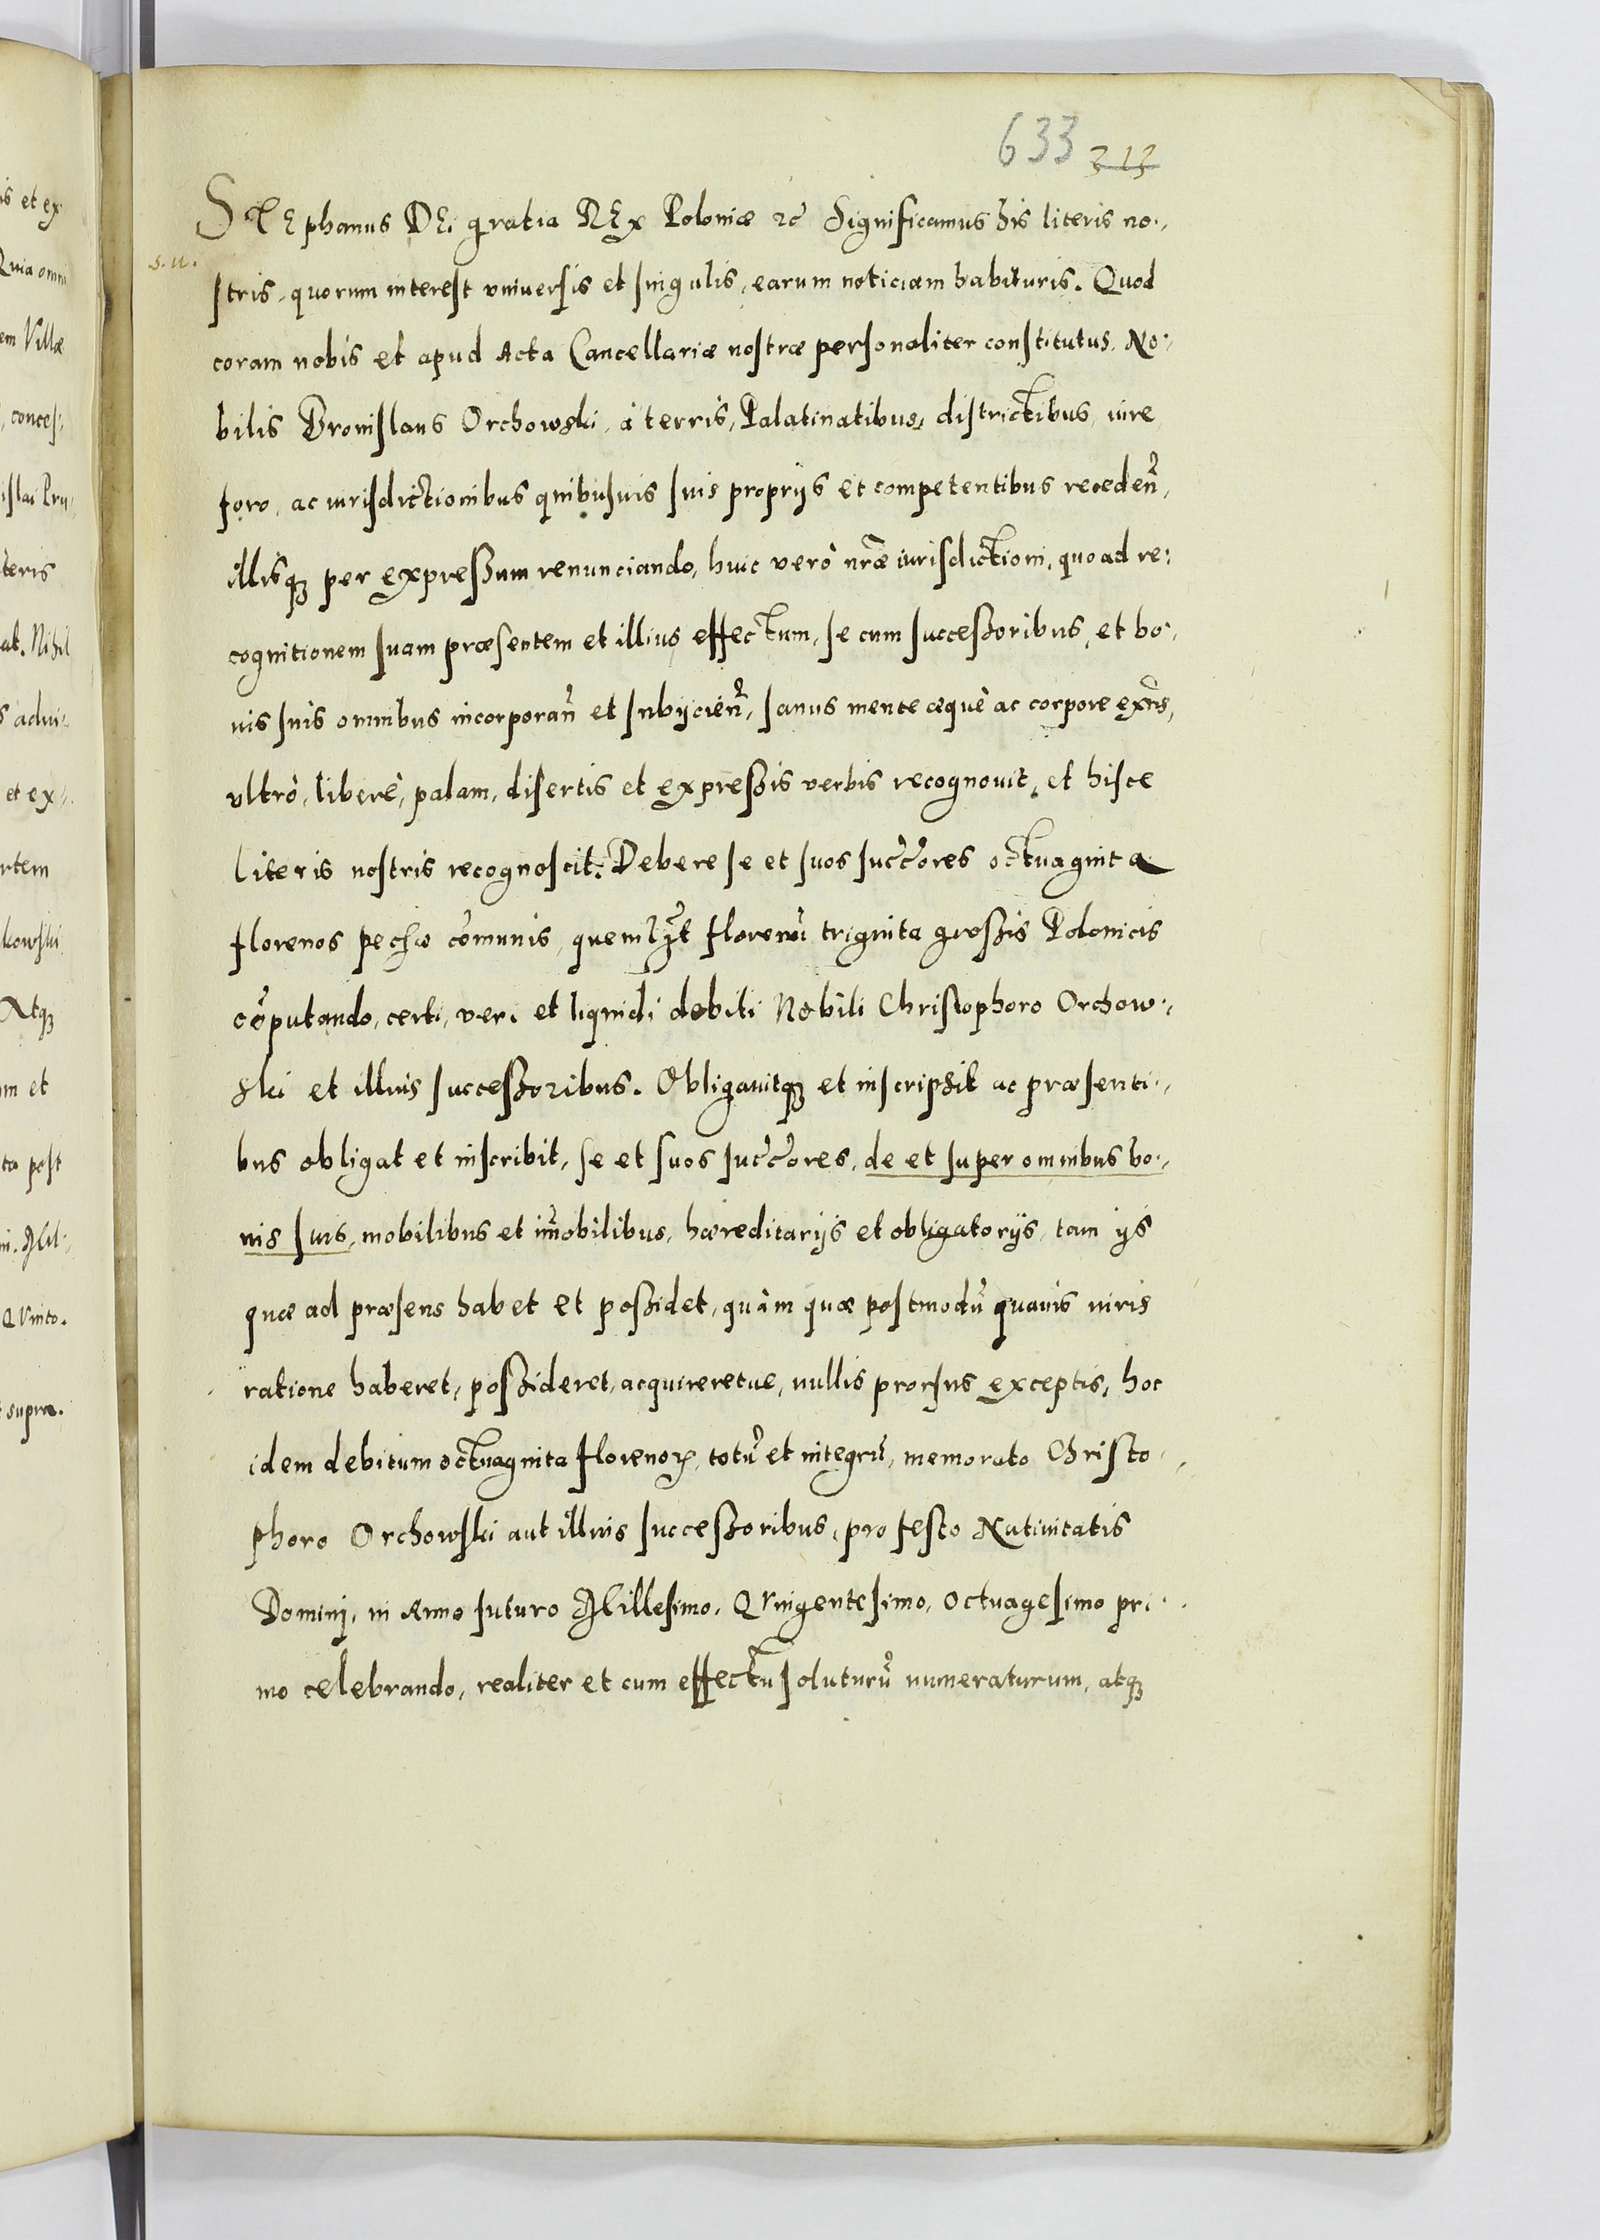 633 313
STEphanus DEi gratia REx Poloniæ etc Significamus his literis no-
s. n.
stris, quorum interest vniuersis et singulis, earum noticiam habituris. Quod
coram nobis et apud Acta Cancellariæ nostræ personaliter constitutus. No-
bilis Bronislaus Orchowski, à terris, Palatinatibus, districtibus, iure
foro, ac iurisdictionibus quibusuis suis proprijs et competentibus receden̄,
illisq; per expressum renunciando, huic verò nr̃æ iurisdictioni, quoad re-
cognitionem suam præsentem et illius effectum, se cum successoribus, et bo-
nis suis omnibus incorporan̄ et subijcien̄, sanus mente æquè ac corpore exn̄s,
vltrò, liberè, palam, disertis et expressis verbis recognouit, et hisce
literis nostris recognoscit. Debere se et suos succ̃ores octuaginta
florenos pec̃hiæ com̄unis, quemlȝt florenū triginta grossis Polonicis
cōputando, certi, veri et liquidi debiti Nobili Christophoro Orchow-
ski et illius successoribus. Obligauitq; et inscripsit ac præsenti-
bus obligat et inscribit, se et suos succ̃ores, de et super omnibus bo-
nis suis, mobilibus et im̄obilibus, hæreditarijs et obligatorijs, tam ijs
quæ ad præsens habet et possidet, quàm quæ postmodū quauis iuris
ratione haberet, possideret, acquireretue, nullis prorsus exceptis, hoc
idem debitum octuaginta florenoꝝ, totū et integrū, memorato Christo-
phoro Orchowski aut illius successoribus, pro festo Natiuitatis
Dominj, in Anno futuro Millesimo, Quingentesimo, Octuagesimo pri-
mo celebrando, realiter et cum effectu soluturū numeraturum, atq;
is et ex
Quia omni
em Villæ
, conces-
islai Pru-
teris
at. Nihil
s adui-
et ex-
rtem
kowski
Atq;
m et
ta post
ni. Mil-
Quinto.
t supra.